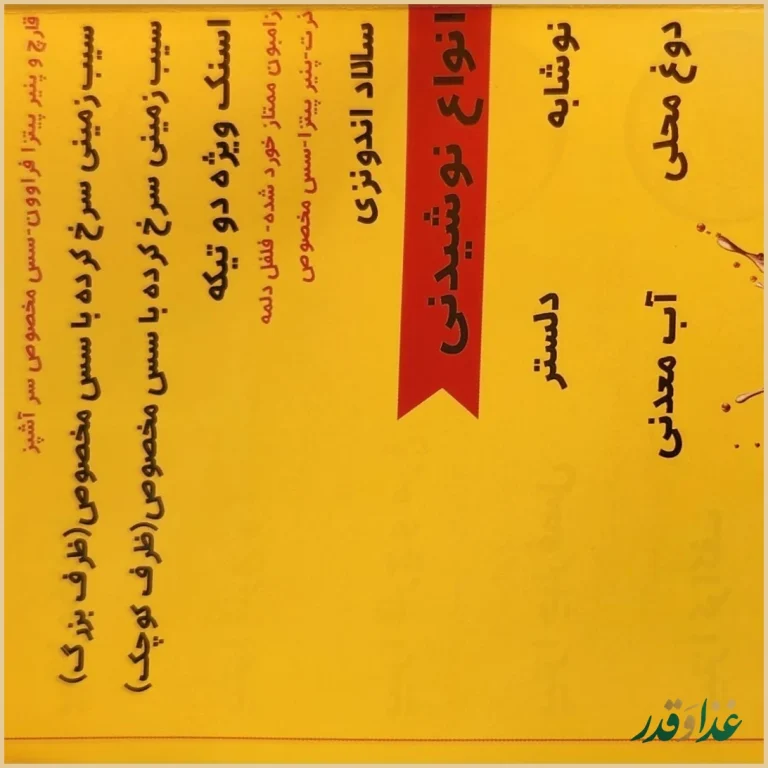 قارچ و پنیر پیتزا فراوون-سس مخصوص سر آشپز
سیب زمینی سرخ کرده با سس مخصوص(ظرف بزرگ)
سیب زمینی سرخ کرده با سس مخصوص(ظرف کوچک)
اسنک ویژه دو تیکه
ژامبون ممتاز خورد شده- فلفل دلمه
ذرت-پنیر پیتزا-سس مخصوص
سالاد اندونزی
انواع نوشیدنی
نوشابه دلستر
دوغ محلی آب معدنی
غذا و قدر